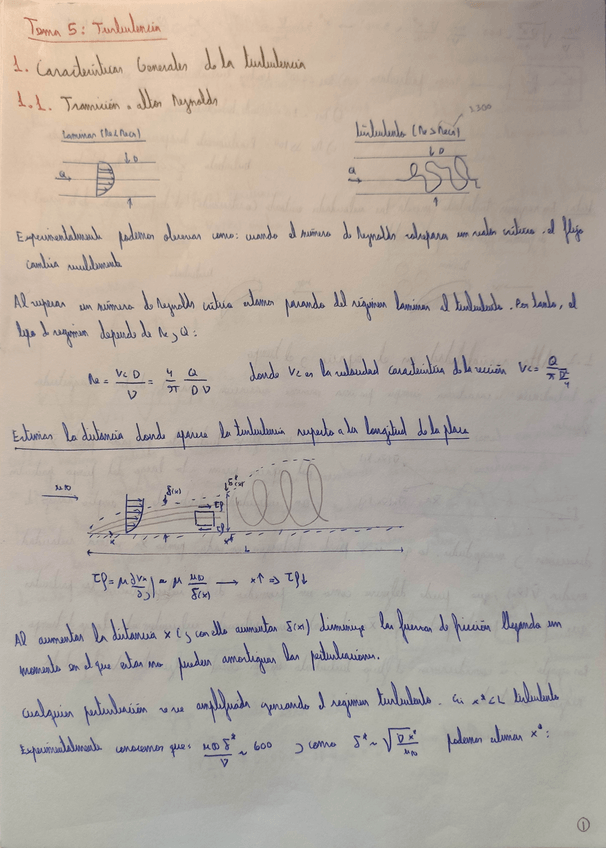 Tema 5: Turbulencia
1. Características Generales de la turbulencia
1.1. Transición a altos Reynolds
2300
Laminar (Re<Recr)
turbulento (Re>Recr)
D
D
Q
Q
Experimentalmente podemos observar como: cuando el número de Reynolds sobrepasa un valor crítico, el flujo
cambia
Al superar un número de Reynolds crítico estamos pasando del régimen laminar al turbulento. Por tanto, el
tipo de regimen depende de Re y Q:
Re = Vc D / ν = 4/π Q/(D ν) donde Vc es la velocidad característica de la sección Vc = Q / (π D²/4)
Estimar la distancia donde aparece la turbulencia respecto a la longitud de la placa
u∞
δ(x)
δ*(x*)
τf
τf
x
x*
L
τf = μ ∂vx/∂y ) ≈ μ u∞/δ(x) → x↑ ⇒ τf↓
Al aumentar la distancia x (y con ello aumentar δ(x)) disminuye las fuerzas de fricción llegando un
momento en el que estas no pueden amortiguar las perturbaciones.
Cualquier perturbación se ve amplificada generando el regimen turbulento. Si x*<L turbulento
Experimentalmente conocemos que: u∞ δ*/ν ~ 600 y como δ* ~ √(ν x*/u∞) podemos estimar x*:
1